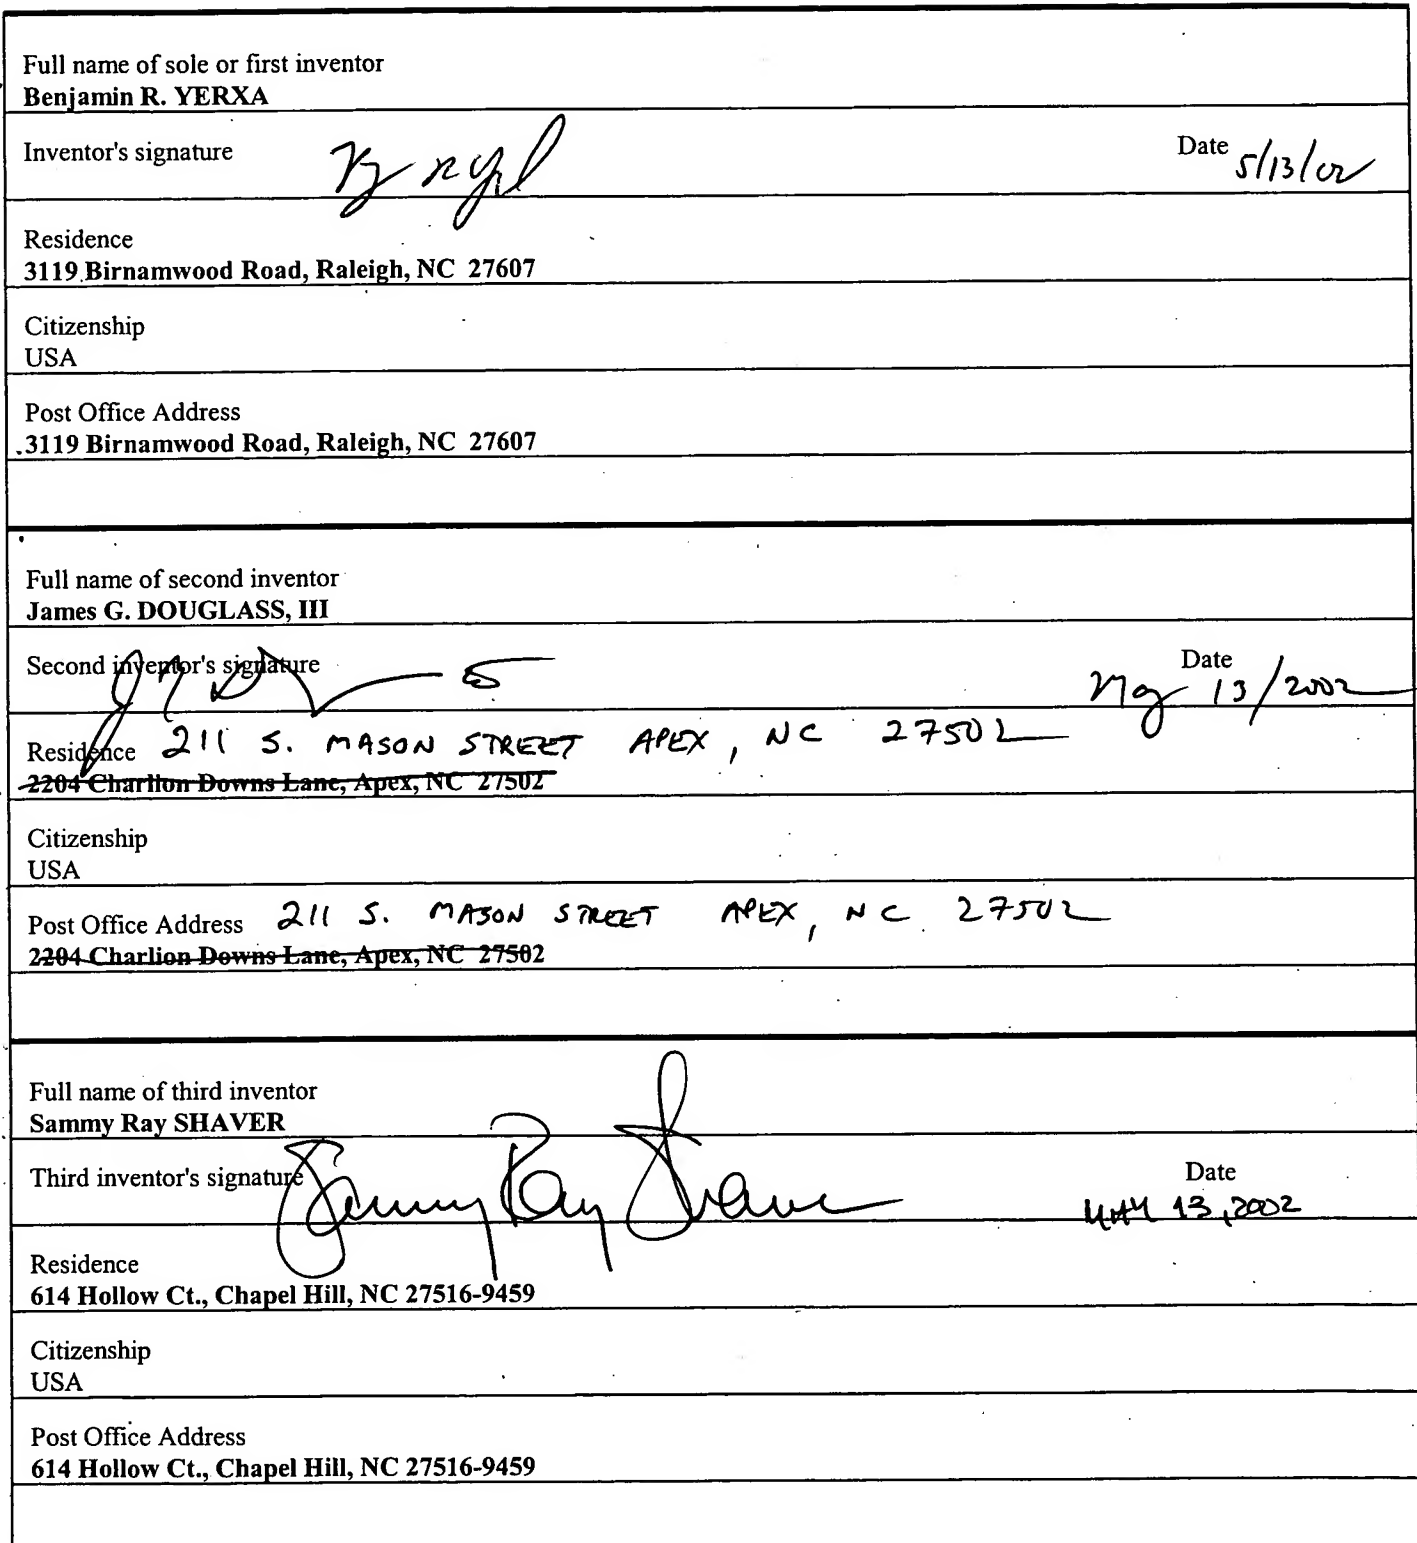 Full name of sole or first inventor
Benjamin R. YERXA
Inventor's signature
Date 5/13/02
Residence
3119 Birnamwood Road, Raleigh, NC 27607
Citizenship
USA
Post Office Address
3119 Birnamwood Road, Raleigh, NC 27607
Full name of second inventor
James G. DOUGLASS, III
Second inventor's signature
Date
May 13/2002
Residence 211 S. MASON STREET APEX, NC 27502
2204 Charlion Downs Lane, Apex, NC 27502
Citizenship
USA
Post Office Address 211 S. MASON STREET APEX, NC 27502
2204 Charlion Downs Lane, Apex, NC 27502
Full name of third inventor
Sammy Ray SHAVER
Third inventor's signature Sammy Ray Shaver
Date
MAY 13, 2002
Residence
614 Hollow Ct., Chapel Hill, NC 27516-9459
Citizenship
USA
Post Office Address
614 Hollow Ct., Chapel Hill, NC 27516-9459